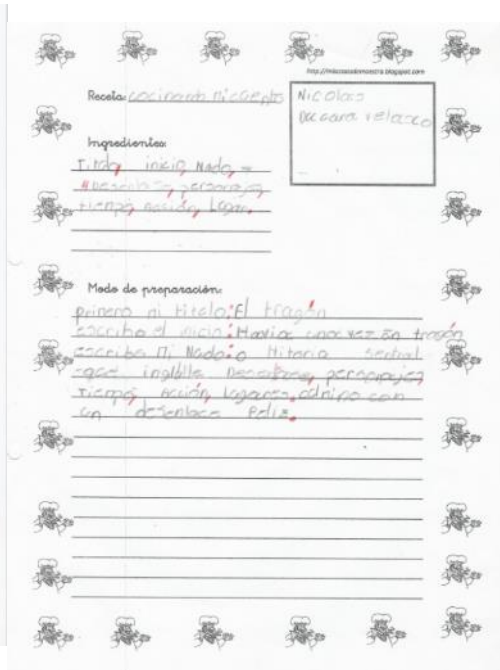 http://micosasdemaestra.blogspot.com
Receta: cocinando mi cuento
Nicolas
Becerra velasco
Ingredientes:
Titulo, inicio, Nado,
desenlase, personajes,
tiempo, acción, Lugar.
Modo de preparación:
primero mi titulo: El tragón
escribo el inicio: Habia una vez un tragón
escribo Mi Nado: o Hitoria sentral
personajes,
Tiempo, acción, Lugares,
un desenlace feliz.